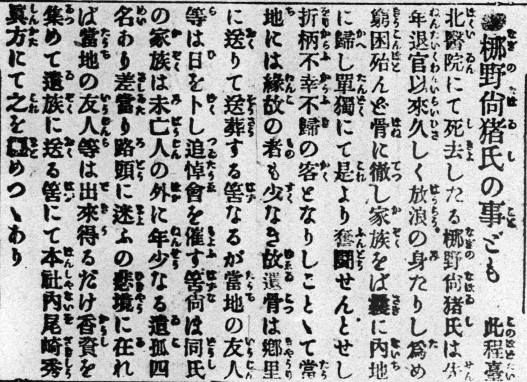 ●梛野尙猪氏の事ども　此程臺
北醫院にて死去したる梛野尙猪氏は先
年退官以來久しく放浪の身たりし爲め
窮困殆んど骨に徹し家族をば曩に內地
に歸し單獨にて是より奮鬪せんとせし
折柄不幸不歸の客となりしことゝて當
地には緣故の者も少なき故遺骨は鄉里
に送りて送葬する筈なるが當地の友人
等は日を卜し追悼會を催す筈尙は同氏
の家族は未亡人の外に年少なる遺孤四
名あり差當り路頭に迷ふの悲境に在れ
ば當地の友人等は出來得るだけ香資を
集めて遺族に送る筈にて本社內尾崎秀
眞方にて之を めつゝあり